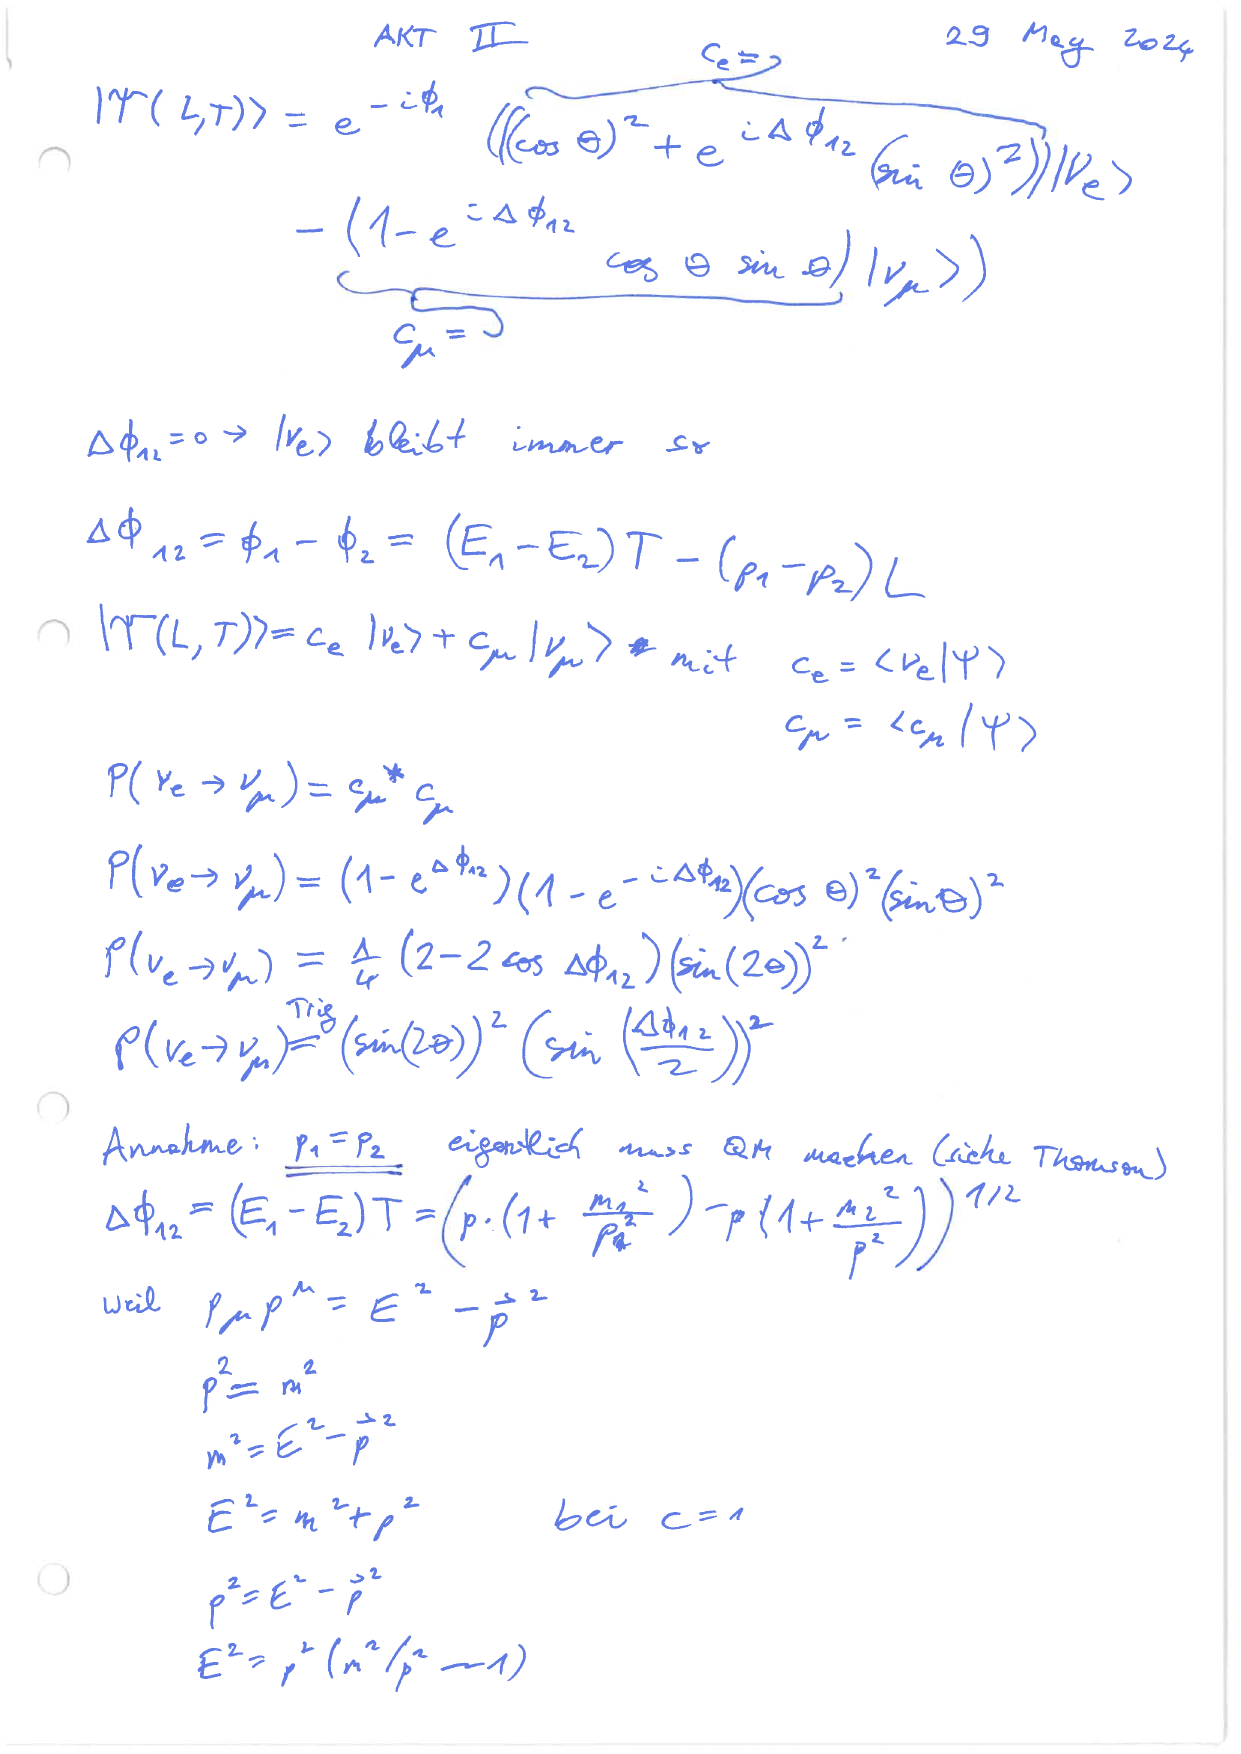 AKT II 29 May 2024
c_e =
|Ψ(L,T)⟩ = e^{-iϕ_1} (((cos θ)^2 + e^{iΔϕ_12} (sin θ)^2)) |ν_e⟩
- (1 - e^{iΔϕ_12} cos θ sin θ) |ν_μ⟩)
c_μ =
Δϕ_12 = 0 → |ν_e⟩ bleibt immer so
Δϕ_12 = ϕ_1 - ϕ_2 = (E_1 - E_2) T - (p_1 - p_2) L
|Ψ(L,T)⟩ = c_e |ν_e⟩ + c_μ |ν_μ⟩ mit c_e = ⟨ν_e|Ψ⟩
c_μ = ⟨c_μ|Ψ⟩
P(ν_e → ν_μ) = c_μ^* c_μ
P(ν_e → ν_μ) = (1 - e^{Δϕ_12})(1 - e^{-iΔϕ_12})(cos θ)^2 (sin θ)^2
P(ν_e → ν_μ) = 1/4 (2 - 2 cos Δϕ_12)(sin(2θ))^2
Trig
P(ν_e → ν_μ) = (sin(2θ))^2 (sin (Δϕ_12/2))^2
Annahme: p_1 = p_2 eigentlich muss QM machen (siehe Thomson)
Δϕ_12 = (E_1 - E_2) T = (p · (1 + m_1^2/p^2) - p (1 + m_2^2/p^2))^{1/2}
weil p_μ p^μ = E^2 - \vec{p}^2
p^2 = m^2
m^2 = E^2 - \vec{p}^2
E^2 = m^2 + p^2 bei c = 1
p^2 = E^2 - \vec{p}^2
E^2 = p^2 (m^2/p^2 - 1)